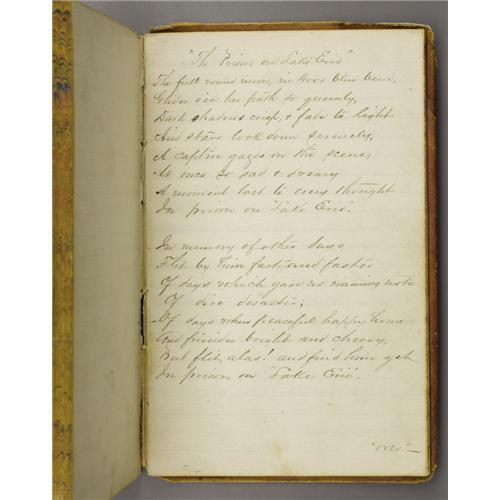 "The Prison on Lake Erie"
The full round moon, in God's blue bend,
Glides o'er her path so queenly,
Dark shadows crisp, & fade to light
And stars look down serenely,
A captive gazes on the scene,
At once so sad & dreary
A moment lost to every thought
In prison on "Lake Erie".
In memory of other days,
Flit by him fast, and faster
Of days which gave no warning note
Of dire disaster;
Of days when peaceful happy homes
And firesides bright and cheery,
But flit, alas! and find him yet
In prison on "Lake Erie".
"over"